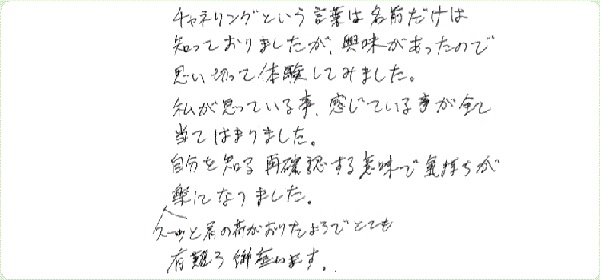 チャネリングという言葉は名前だけは
知っておりましたが、興味があったので
思い切って体験してみました。
私が思っている事、感じている事が全て
当てはまりました。
自分を知る再確認する意味で気持ちが
楽になりました。
スーッと肩の荷がおりたようでとても
有難う御座います。